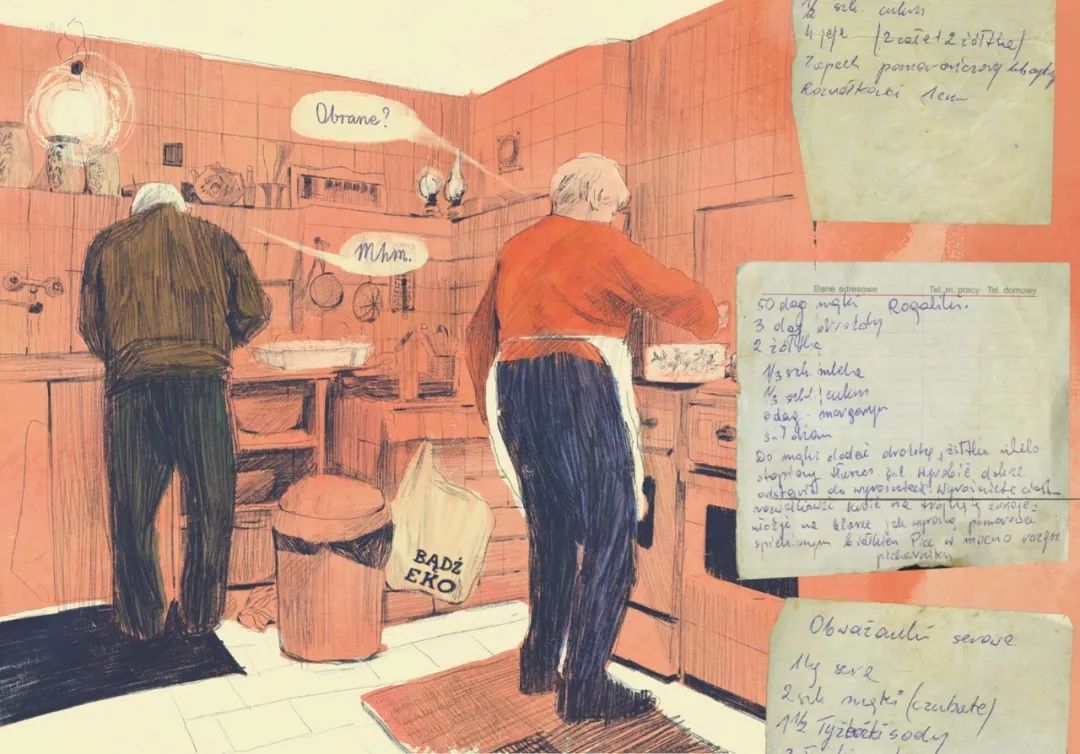 Obrane?
Mhm.
BĄDŹ
EKO
1/2 szk. cukru
4 jaja (2 całe + 2 żółtka)
Zapach pomarańczowy lub
1 cm
Dane adresowe Tel. m. pracy Tel. domowy
50 dag mąki Rogaliki.
3 dag drożdży
2 żółtka
1/3 szk. mleka
1/3 szkl. cukru
6 dag. margaryn
Do mąki dodać drożdże, żółtka, mleko
stopiony tłuszcz, Wyrobić dobrze
odstawić do wyrośnięcia. Wyrośnięte ciasto
kroić na trójkąty,
na blasze jak wyrosną
białkiem Piec w mocno
piekarniku
Obważanki serowe
1 kg sera
2 szk mąki (czubate)
1 1/2 Łyżeczki sody